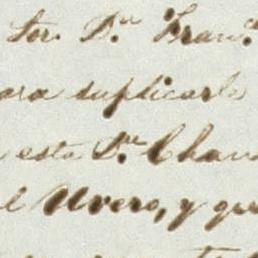 tor. D.n Fran.co
ara suplicarle
esta D.n Chan
el Uvero, y que